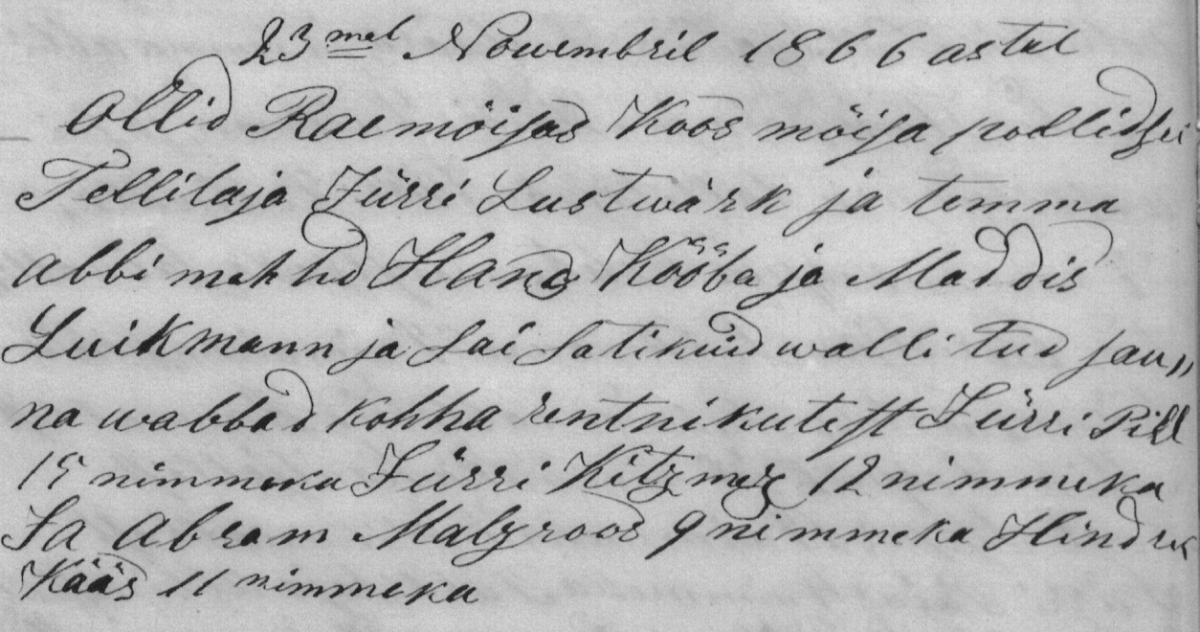 23mel Nowembril 1866 astal
Ollid Raemöisas Koos möisa pollidsei
Tellitaja Jürri Lustwärk ja temma
abbi mehhed Hans Kööba ja Maddis
Luikmann ja sai satikuid wallitud sau„
na wabbad kohha rentnikutest Jürri Pill
15 nimmeka Jürri Kitzing 12 nimmeka
Ja Abram Malzroos 9 nimmeka Hindrek
Kääs 11 nimmeka